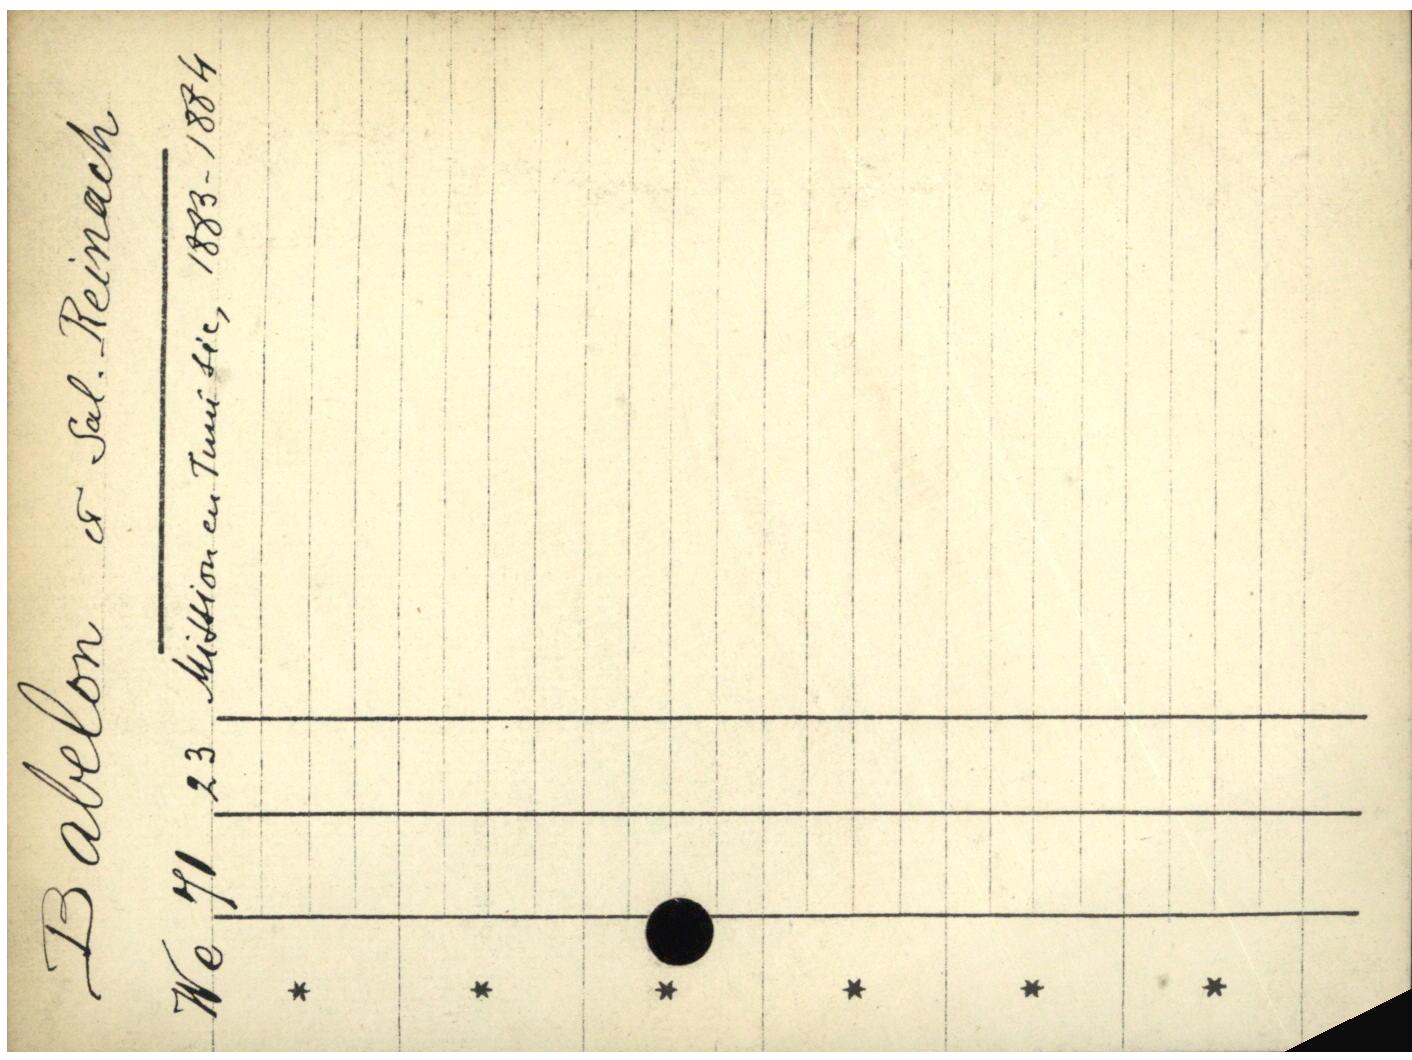 Babelon et Sal. Reinach
We 71 23 Mission en Tunisie, 1883-1884
*
*
*
*
*
*